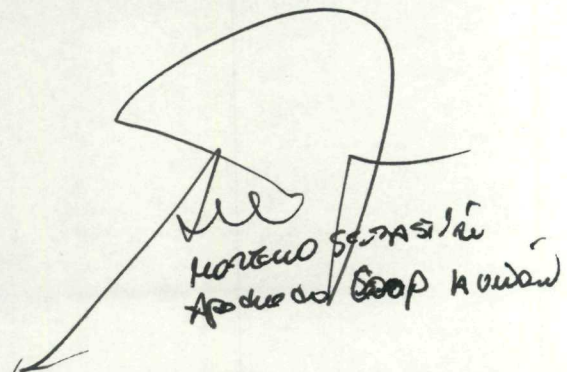 MORENO SEBASTIÁN
Apoderado Coop La Unión